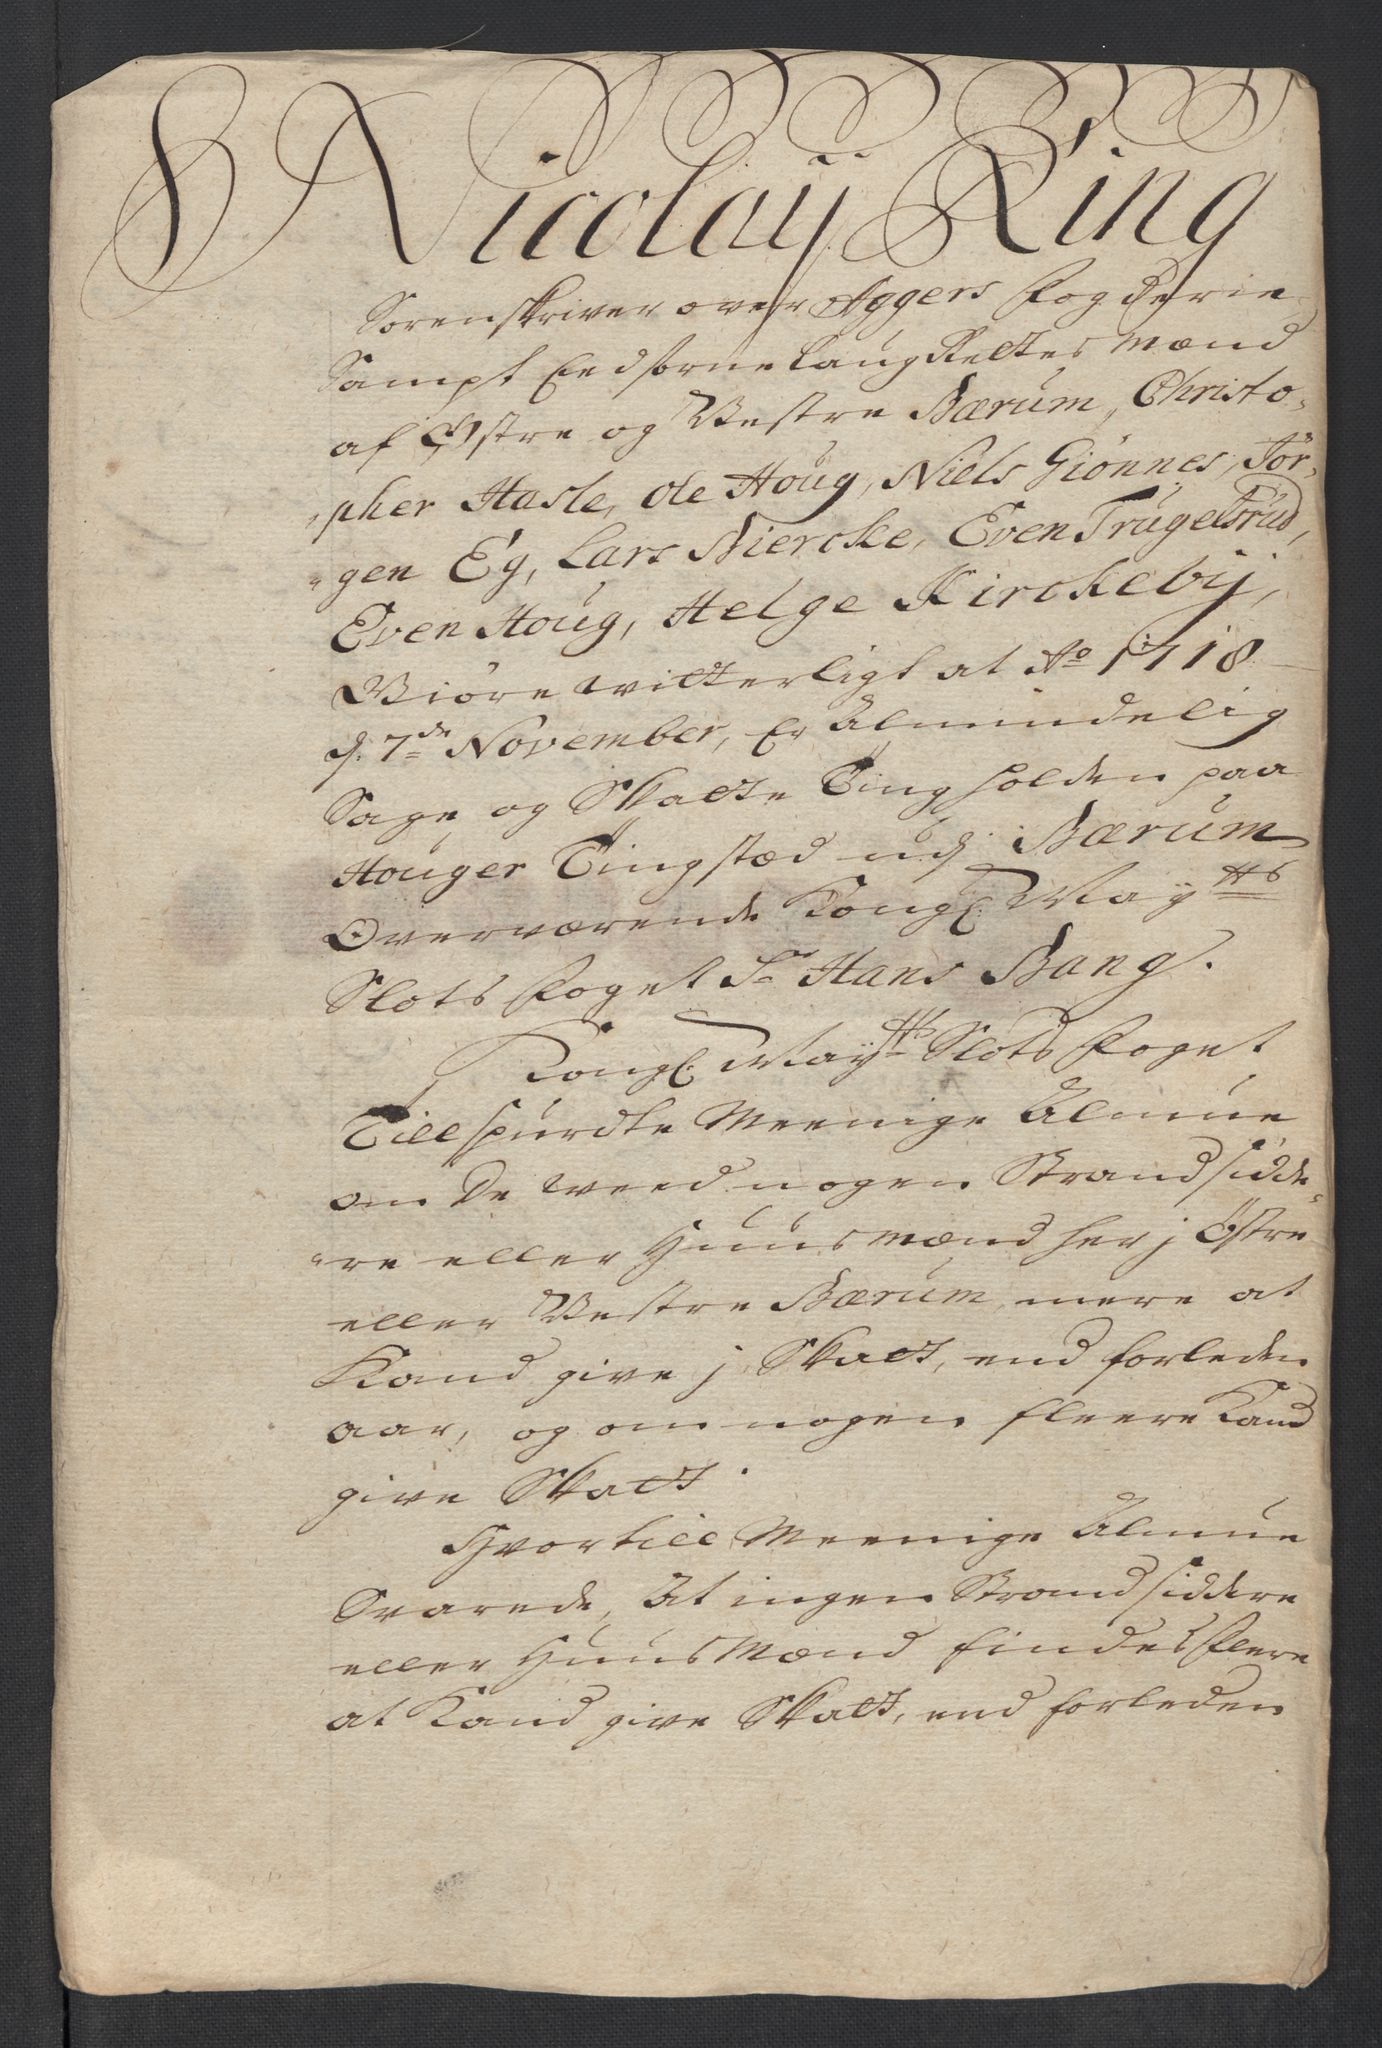 Nicolaÿ Ring
Sorenskriver over Aggers Fogderie
Sampt Eedsorne Laug Rettes Mænd
af Østre og Vestre Bærum, Christo-
pher Hasle, Ole Houg, Niels Giønnes, Jör-
gen Eg, Lars Biercke, Even Trugelsrud,
Even Houg, Helge Kirckebÿ,
Giøre witterligt at Ao 1718
d. 7de November, Er Almindelig
Sage og Skatte Ting holden paa
Houger Tingstæd udj Bærum
Overværende Kongl. Mayts
Slots Foget Sr Hans Bang.
Kongl. Mayts Slots Foget
Tillspurdte Meenige Almue
om De weed nogen Strandsidde-
re eller Huusmænd her j Østre
eller Vestre Bærum, mere at
Kand give j Skatt, end forleden
aar, og om nogen fleere Kand
give Skatt.
Hvortill Meenige Almue
Svarede, At ingen Strandsiddere
eller Huusmænd findes flere
at Kand give Skatt, end forleden